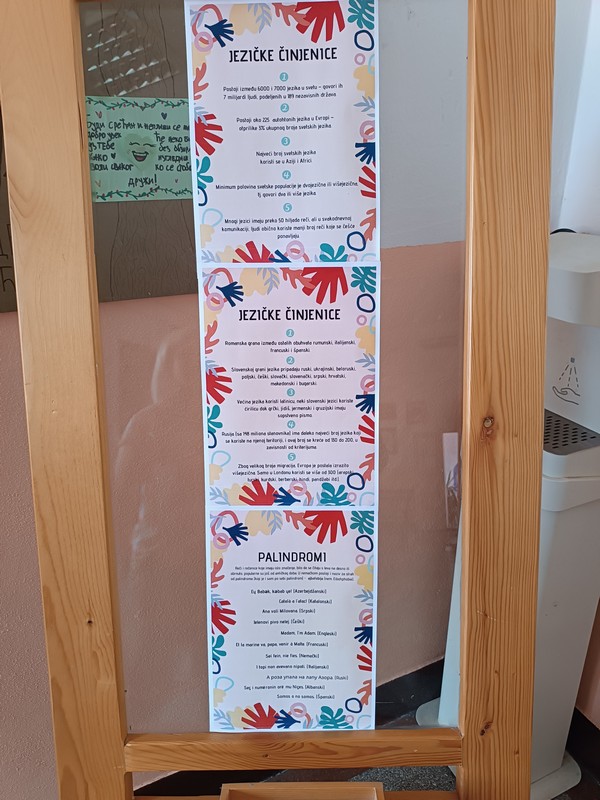 JEZIČKE ČINJENICE
1
Postoji između 6000 i 7000 jezika u svetu – govori ih
7 milijardi ljudi, podeljenih u 189 nezavisnih država.
2
Postoji oko 225 autohtonih jezika u Evropi –
otprilike 3% ukupnog broja svetskih jezika
3
Najveći broj svetskih jezika
koristi se u Aziji i Africi
4
Minimum polovina svetske populacije je dvojezična ili višejezična,
tj. govori dva ili više jezika.
5
Mnogi jezici imaju preko 50 hiljada reči, ali u svakodnevnoj
komunikaciji, ljudi obično koriste manji broj reči koje se češće
ponavljaju.
JEZIČKE ČINJENICE
1
Romanska grana između ostalih obuhvata rumunski, italijanski,
francuski i španski.
2
Slovenskoj grani jezika pripadaju ruski, ukrajinski, beloruski,
poljski, češki, slovački, slovenački, srpski, hrvatski,
makedonski i bugarski.
3
Većina jezika koristi latinicu, neki slovenski jezici koriste
ćirilicu dok grčki, jidiš, jermenski i gruzijski imaju
sopstveno pismo.
4
Rusija (sa 148 miliona stanovnika) ima daleko najveći broj jezika koji
se koriste na njenoj teritoriji, i ovaj broj se kreće od 130 do 200, u
zavisnosti od kriterijuma.
5
Zbog velikog broja migracija, Evropa je postala izrazito
višejezična. Samo u Londonu koristi se više od 300 (arapski,
turski, kurdski, berberski, hindi, pandžabi itd.).
PALINDROMI
Ey Babək, kəbab ye! (Azerbejdžanski)
Català a l'atac! (Katalonski)
Ana voli Milovana. (Srpski)
Jelenovi pivo nelej. (Češki)
Madam, I'm Adam. (Engleski)
Et la marine va, papa, venir à Malte. (Francuski)
Sei fein, nie fies. (Nemački)
I topi non avevano nipoti. (Italijanski)
А роза упала на лапу Азора. (Ruski)
(Albanski)
Somos o no somos. (Španski)